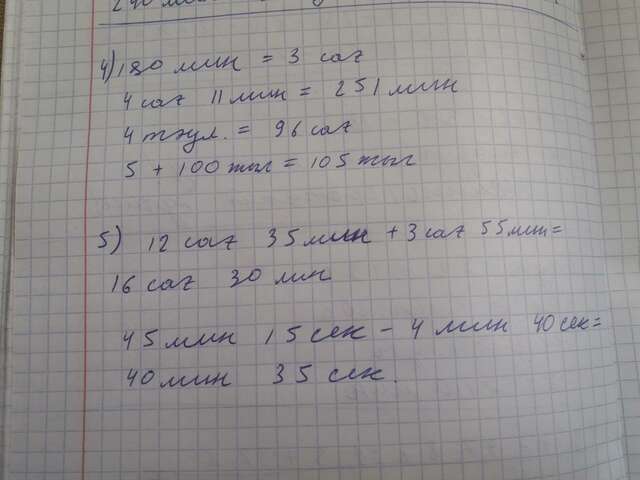 4) 180 мин = 3 саг
4 саг 11 мин = 251 мин
4 тәул. = 96 саг
5 + 100 жыл = 105 жыл
5) 12 саг 35 мин + 3 саг 55 мин =
16 саг 30 мин
45 мин 15 сек - 4 мин 40 сек =
40 мин 35 сек.